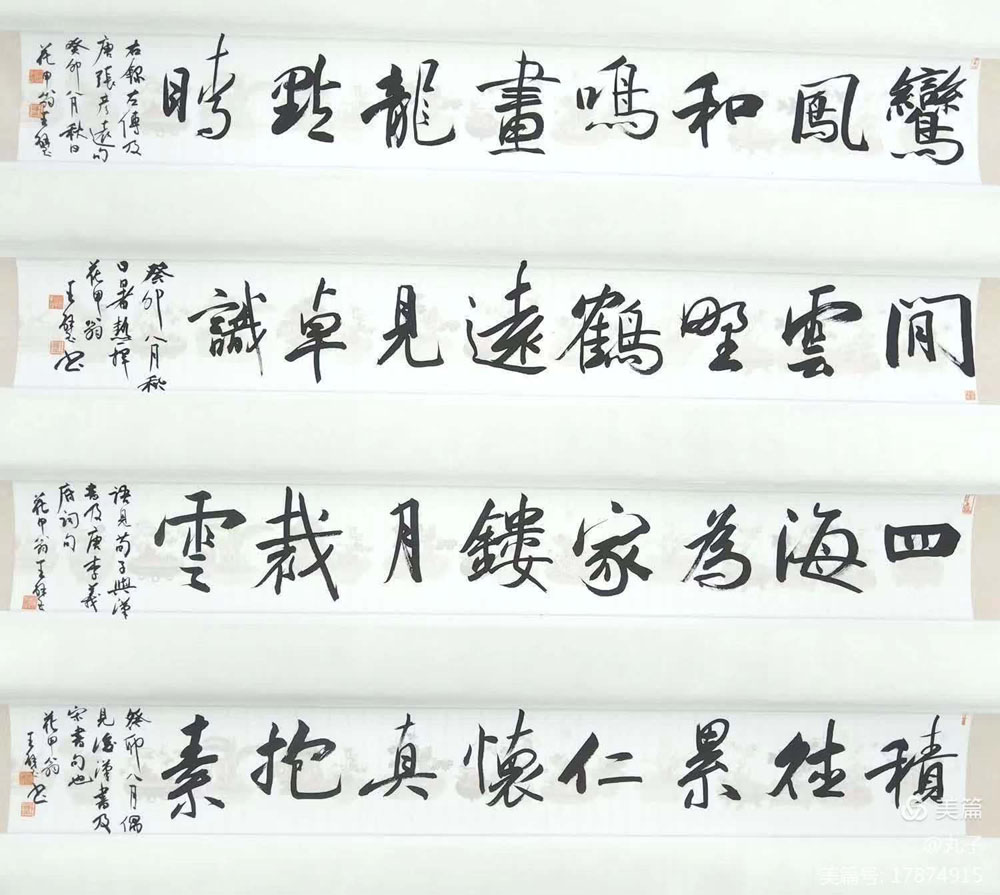 鸞鳳和鳴畫龍點睛
右錄左傳及
唐張彥遠句
癸卯八月秋日
花甲翁王
閒雲野鶴遠見卓識
癸卯八月秋
日暑熱揮
花甲翁
王 书
四海為家鏤月裁雲
語見荀子與漢
書及唐李義
府詞句
花甲翁王
積德累仁懷真抱素
癸卯八月偶
見後漢書及
宋書句也
花甲翁
王 书
美篇
@丸子
美篇号: 17874915